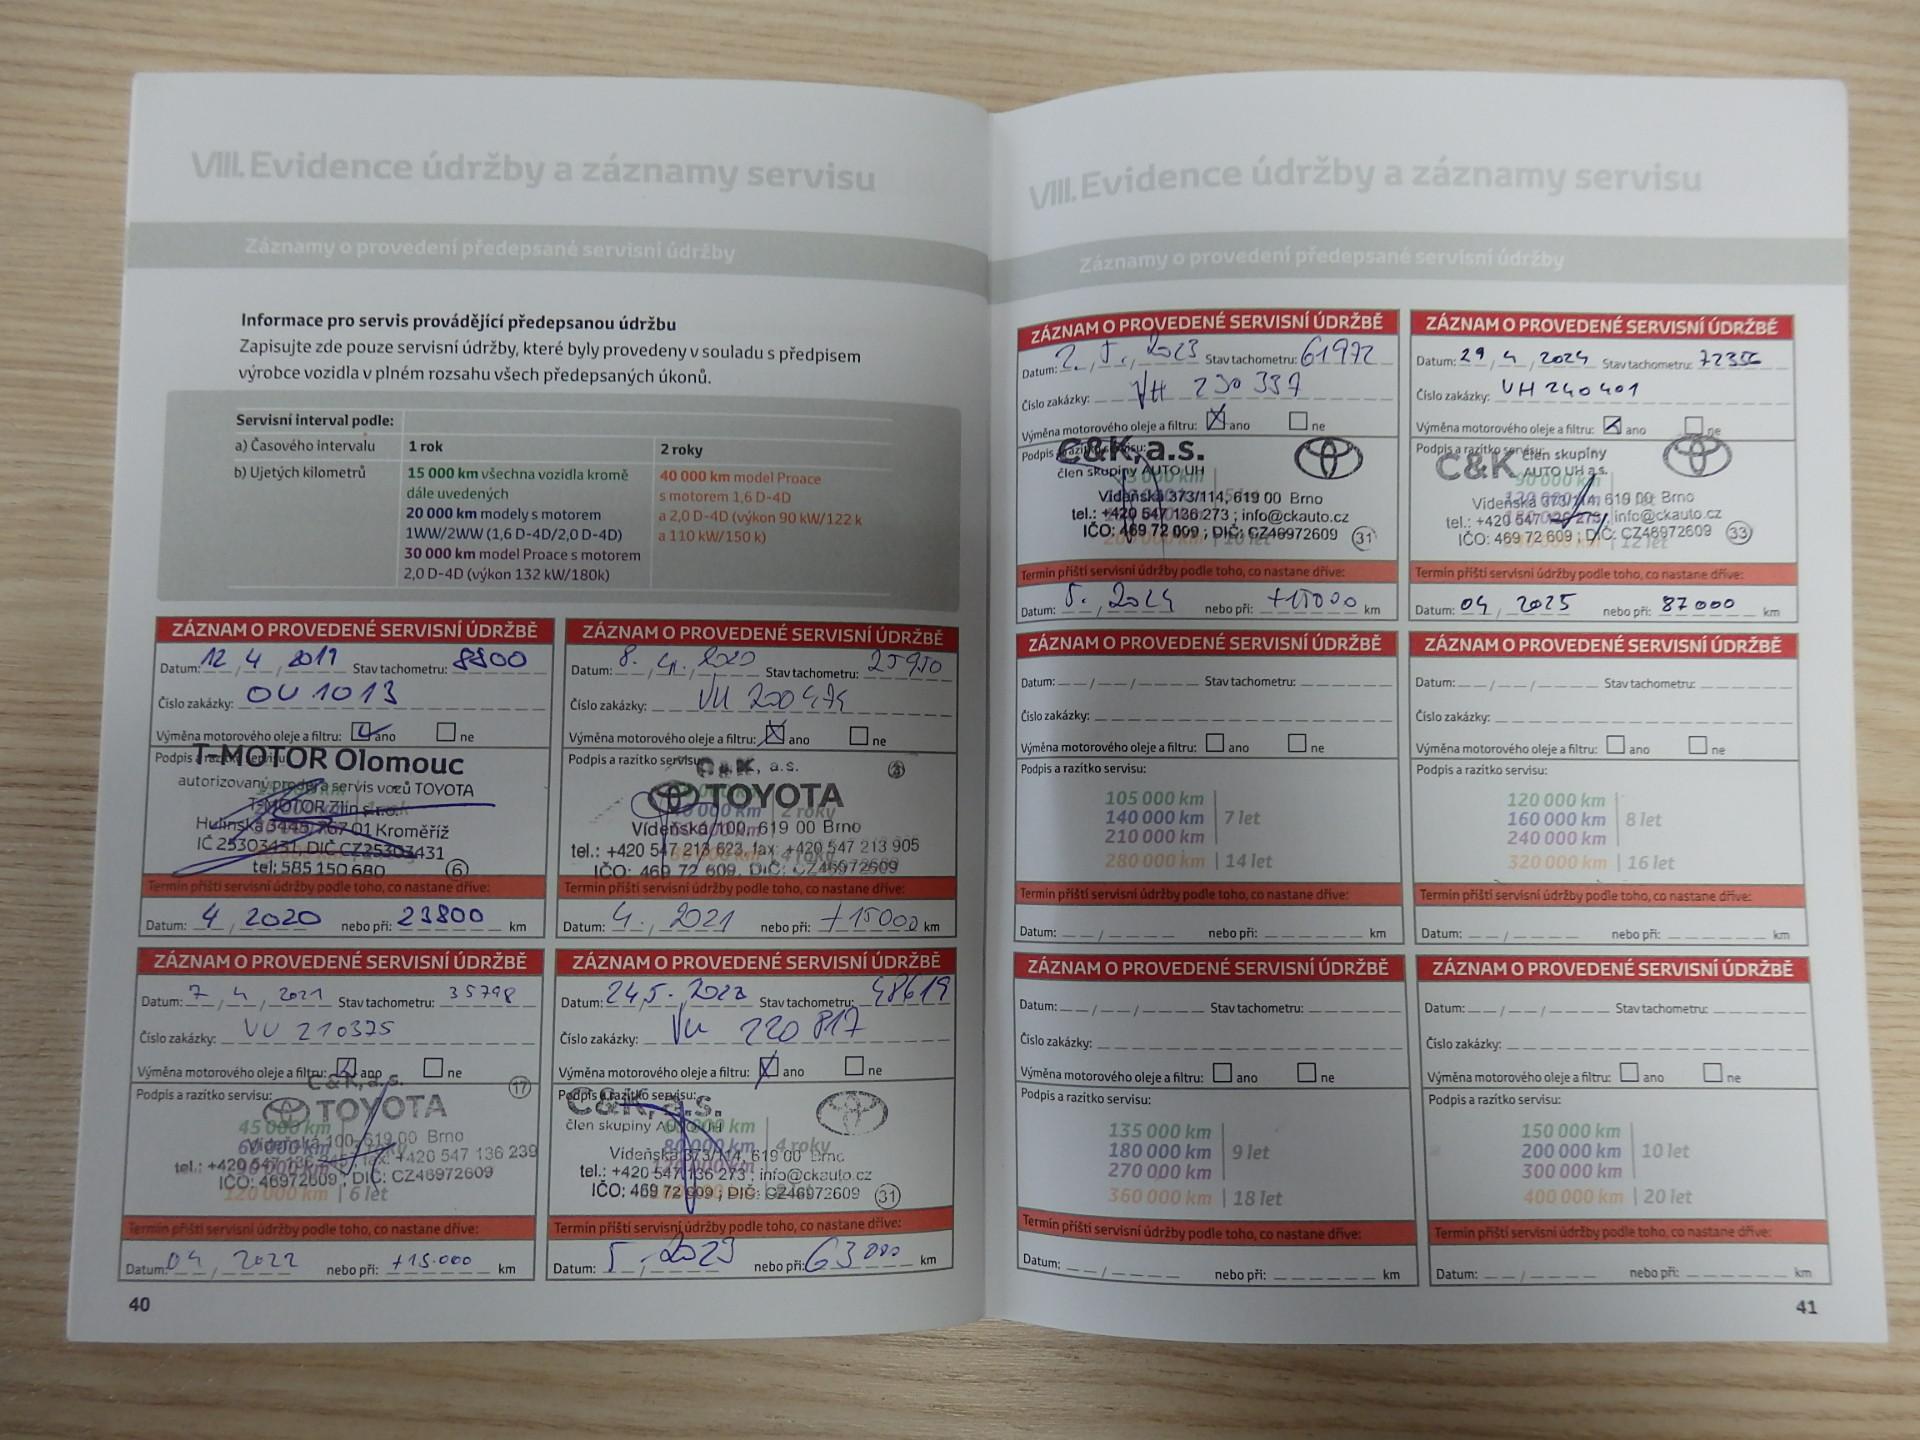 VIII. Evidence údržby a záznamy servisu
Záznamy o provedení předepsané servisní údržby
Informace pro servis provádějící předepsanou údržbu
Zapisujte zde pouze servisní údržby, které byly provedeny v souladu s předpisem
výrobce vozidla v plném rozsahu všech předepsaných úkonů.
Servisní interval podle:
a) Časového intervalu 1 rok 2 roky
b) Ujetých kilometrů
15 000 km všechna vozidla kromě
dále uvedených
20 000 km modely s motorem
1WW/2WW (1,6 D-4D/2,0 D-4D)
30 000 km model Proace s motorem
2,0 D-4D (výkon 132 kW/180k)
40 000 km model Proace
s motorem 1,6 D-4D
a 2,0 D-4D (výkon 90 kW/122 k
a 110 kW/150 k)
ZÁZNAM O PROVEDENÉ SERVISNÍ ÚDRŽBĚ
Datum: 12 / 4 / 2019 Stav tachometru: 8800
Číslo zakázky: OU 1013
Výměna motorového oleje a filtru: ano ne
Podpis a razítko servisu:
T-MOTOR Olomouc
autorizovaný prodej a servis vozů TOYOTA
T-MOTOR Zlín s.r.o.
Hulínská 3445, 767 01 Kroměříž
IČ 25303431, DIČ CZ25303431
tel: 585 150 680 6
Termín příští servisní údržby podle toho, co nastane dříve:
Datum: 4 / 2020 nebo při: 23800 km
ZÁZNAM O PROVEDENÉ SERVISNÍ ÚDRŽBĚ
Datum: 8. / 4. / 2020 Stav tachometru: 25950
Číslo zakázky: VU 200474
Výměna motorového oleje a filtru: ano ne
Podpis a razítko servisu:
C&K, a.s.
TOYOTA
2 roky
Vídeňská 100, 619 00 Brno
4 roky
tel.: +420 547 213 623, fax +420 547 213 905
IČO: 469 72 609, DIČ: CZ46972609
Termín příští servisní údržby podle toho, co nastane dříve:
Datum: 4. / 2021 nebo při: +15000 km
ZÁZNAM O PROVEDENÉ SERVISNÍ ÚDRŽBĚ
Datum: 7 / 4 / 2021 Stav tachometru: 35798
Číslo zakázky: VU 210375
Výměna motorového oleje a filtru: ano ne
Podpis a razítko servisu:
C&K, a.s. 17
TOYOTA
45 000 km
Vídeňská 100, 619 00 Brno
fax: +420 547 136 239
IČO: 46972609 ; DIČ: CZ46972609
120 000 km | 6 let
Termín příští servisní údržby podle toho, co nastane dříve:
Datum: 04 / 2022 nebo při: +15.000 km
ZÁZNAM O PROVEDENÉ SERVISNÍ ÚDRŽBĚ
Datum: 24 / 5. / 2022 Stav tachometru: 48619
Číslo zakázky: VU 220817
Výměna motorového oleje a filtru: ano ne
Podpis a razítko servisu:
C&K, a.s.
člen skupiny AUTO UH
4 roky
Vídeňská 373/114, 619 00 Brno
tel.: +420 547 136 273 ; info@ckauto.cz
IČO: 469 72 609 ; DIČ: CZ46972609 31
Termín příští servisní údržby podle toho, co nastane dříve:
Datum: 5 / 2023 nebo při: 63 000 km
40
VIII. Evidence údržby a záznamy servisu
Záznamy o provedení předepsané servisní údržby
ZÁZNAM O PROVEDENÉ SERVISNÍ ÚDRŽBĚ
Datum: 2. / 5. / 2023 Stav tachometru: 61972
Číslo zakázky: VH 230337
Výměna motorového oleje a filtru: ano ne
Podpis a razítko servisu:
C&K, a.s.
člen skupiny AUTO UH
Vídeňská 373/114, 619 00 Brno
tel.: +420 547 136 273 ; info@ckauto.cz
IČO: 469 72 609 ; DIČ: CZ46972609 31
Termín příští servisní údržby podle toho, co nastane dříve:
Datum: 5. / 2024 nebo při: +15000 km
ZÁZNAM O PROVEDENÉ SERVISNÍ ÚDRŽBĚ
Datum: 29 / 4 / 2024 Stav tachometru: 72356
Číslo zakázky: VH 240401
Výměna motorového oleje a filtru: ano ne
Podpis a razítko servisu:
C&K člen skupiny
AUTO UH a.s.
90 000 km
Vídeňská 373/114, 619 00 Brno
tel.: +420 547 136 273 ; info@ckauto.cz
IČO: 469 72 609 ; DIČ: CZ46972609 33
12 let
Termín příští servisní údržby podle toho, co nastane dříve:
Datum: 04 / 2025 nebo při: 87000 km
ZÁZNAM O PROVEDENÉ SERVISNÍ ÚDRŽBĚ
Datum: / / Stav tachometru:
Číslo zakázky:
Výměna motorového oleje a filtru: ano ne
Podpis a razítko servisu:
105 000 km
140 000 km | 7 let
210 000 km
280 000 km | 14 let
Termín příští servisní údržby podle toho, co nastane dříve:
Datum: / nebo při: km
ZÁZNAM O PROVEDENÉ SERVISNÍ ÚDRŽBĚ
Datum: / / Stav tachometru:
Číslo zakázky:
Výměna motorového oleje a filtru: ano ne
Podpis a razítko servisu:
120 000 km
160 000 km | 8 let
240 000 km
320 000 km | 16 let
Termín příští servisní údržby podle toho, co nastane dříve:
Datum: / nebo při: km
ZÁZNAM O PROVEDENÉ SERVISNÍ ÚDRŽBĚ
Datum: / / Stav tachometru:
Číslo zakázky:
Výměna motorového oleje a filtru: ano ne
Podpis a razítko servisu:
135 000 km
180 000 km | 9 let
270 000 km
360 000 km | 18 let
Termín příští servisní údržby podle toho, co nastane dříve:
Datum: / nebo při: km
ZÁZNAM O PROVEDENÉ SERVISNÍ ÚDRŽBĚ
Datum: / / Stav tachometru:
Číslo zakázky:
Výměna motorového oleje a filtru: ano ne
Podpis a razítko servisu:
150 000 km
200 000 km | 10 let
300 000 km
400 000 km | 20 let
Termín příští servisní údržby podle toho, co nastane dříve:
Datum: / nebo při: km
41